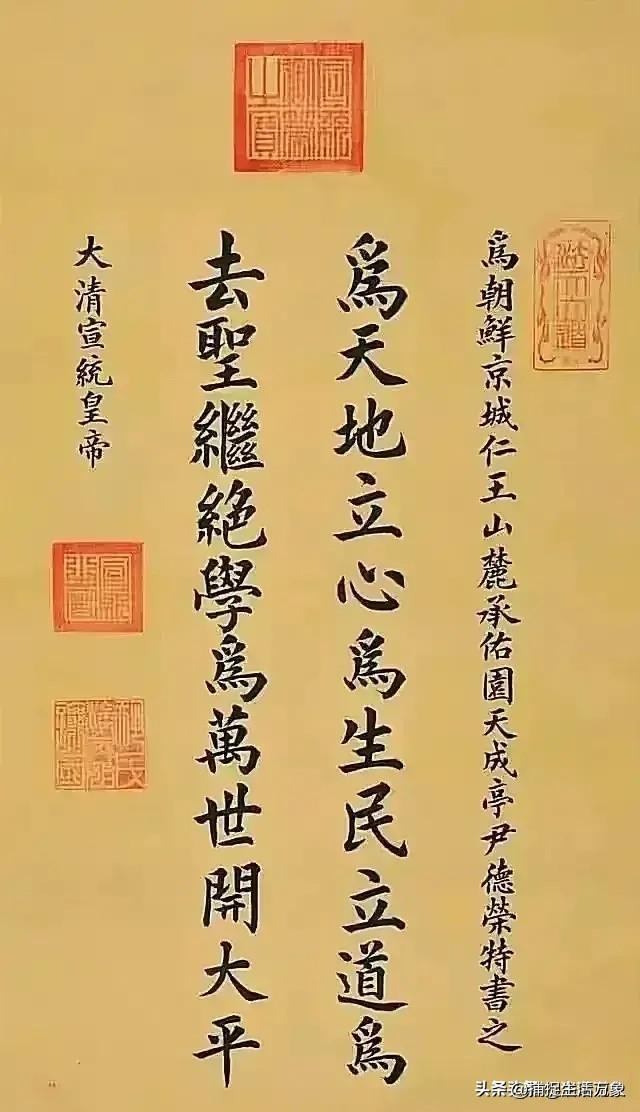 爲朝鮮京城仁王山麓承佑園天成亭尹德榮特書之
爲天地立心爲生民立道爲
去聖繼絶學爲萬世開大平
大清宣統皇帝
头条 @捕捉生活万象